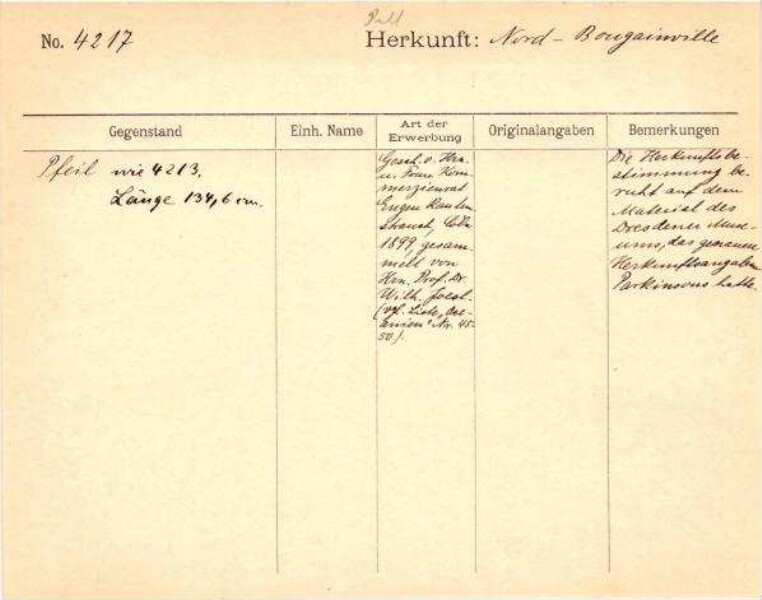 No. 4217
Herkunft: Nord-Bougainville
Gegenstand
Einh. Name
Art der
Erwerbung
Originalangaben
Bemerkungen
Pfeil wie 4213.
Länge 134,6 cm.
Gesch. v. Hrn.
u. Frau Kom-
merzienrat
Eugen Rauten-
strauch, Cöln
1899, gesam-
melt von
Hrn. Prof. Dr.
Wilh. Joest.
(vgl. Liste „Oze-
anien" Nr. 45-
50).
Die Herkunftsbe-
stimmung be-
ruht auf dem
Material des
Dresdener Muse-
ums, das genauere
Herkunftsangaben
Parkinsons hatte.